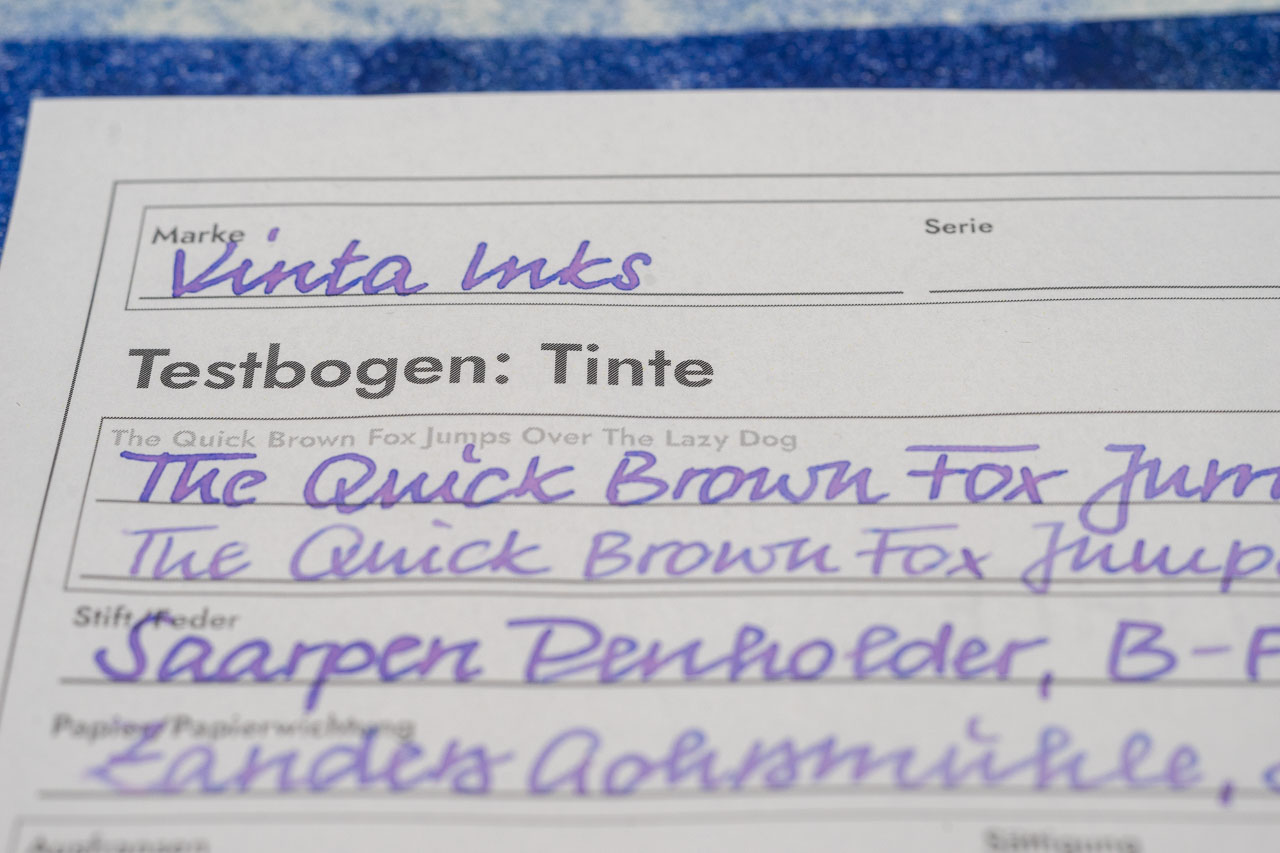 Marke
Serie
Vinta Inks
Testbogen: Tinte
The Quick Brown Fox Jumps Over The Lazy Dog
The Quick Brown Fox Jum
The Quick Brown Fox Jumps
Stift/Feder
Saarpen Penholder, B-F
Papier/Papierwichtung
Zanders Gohrsmühle,
Ausfransen
Sättigung